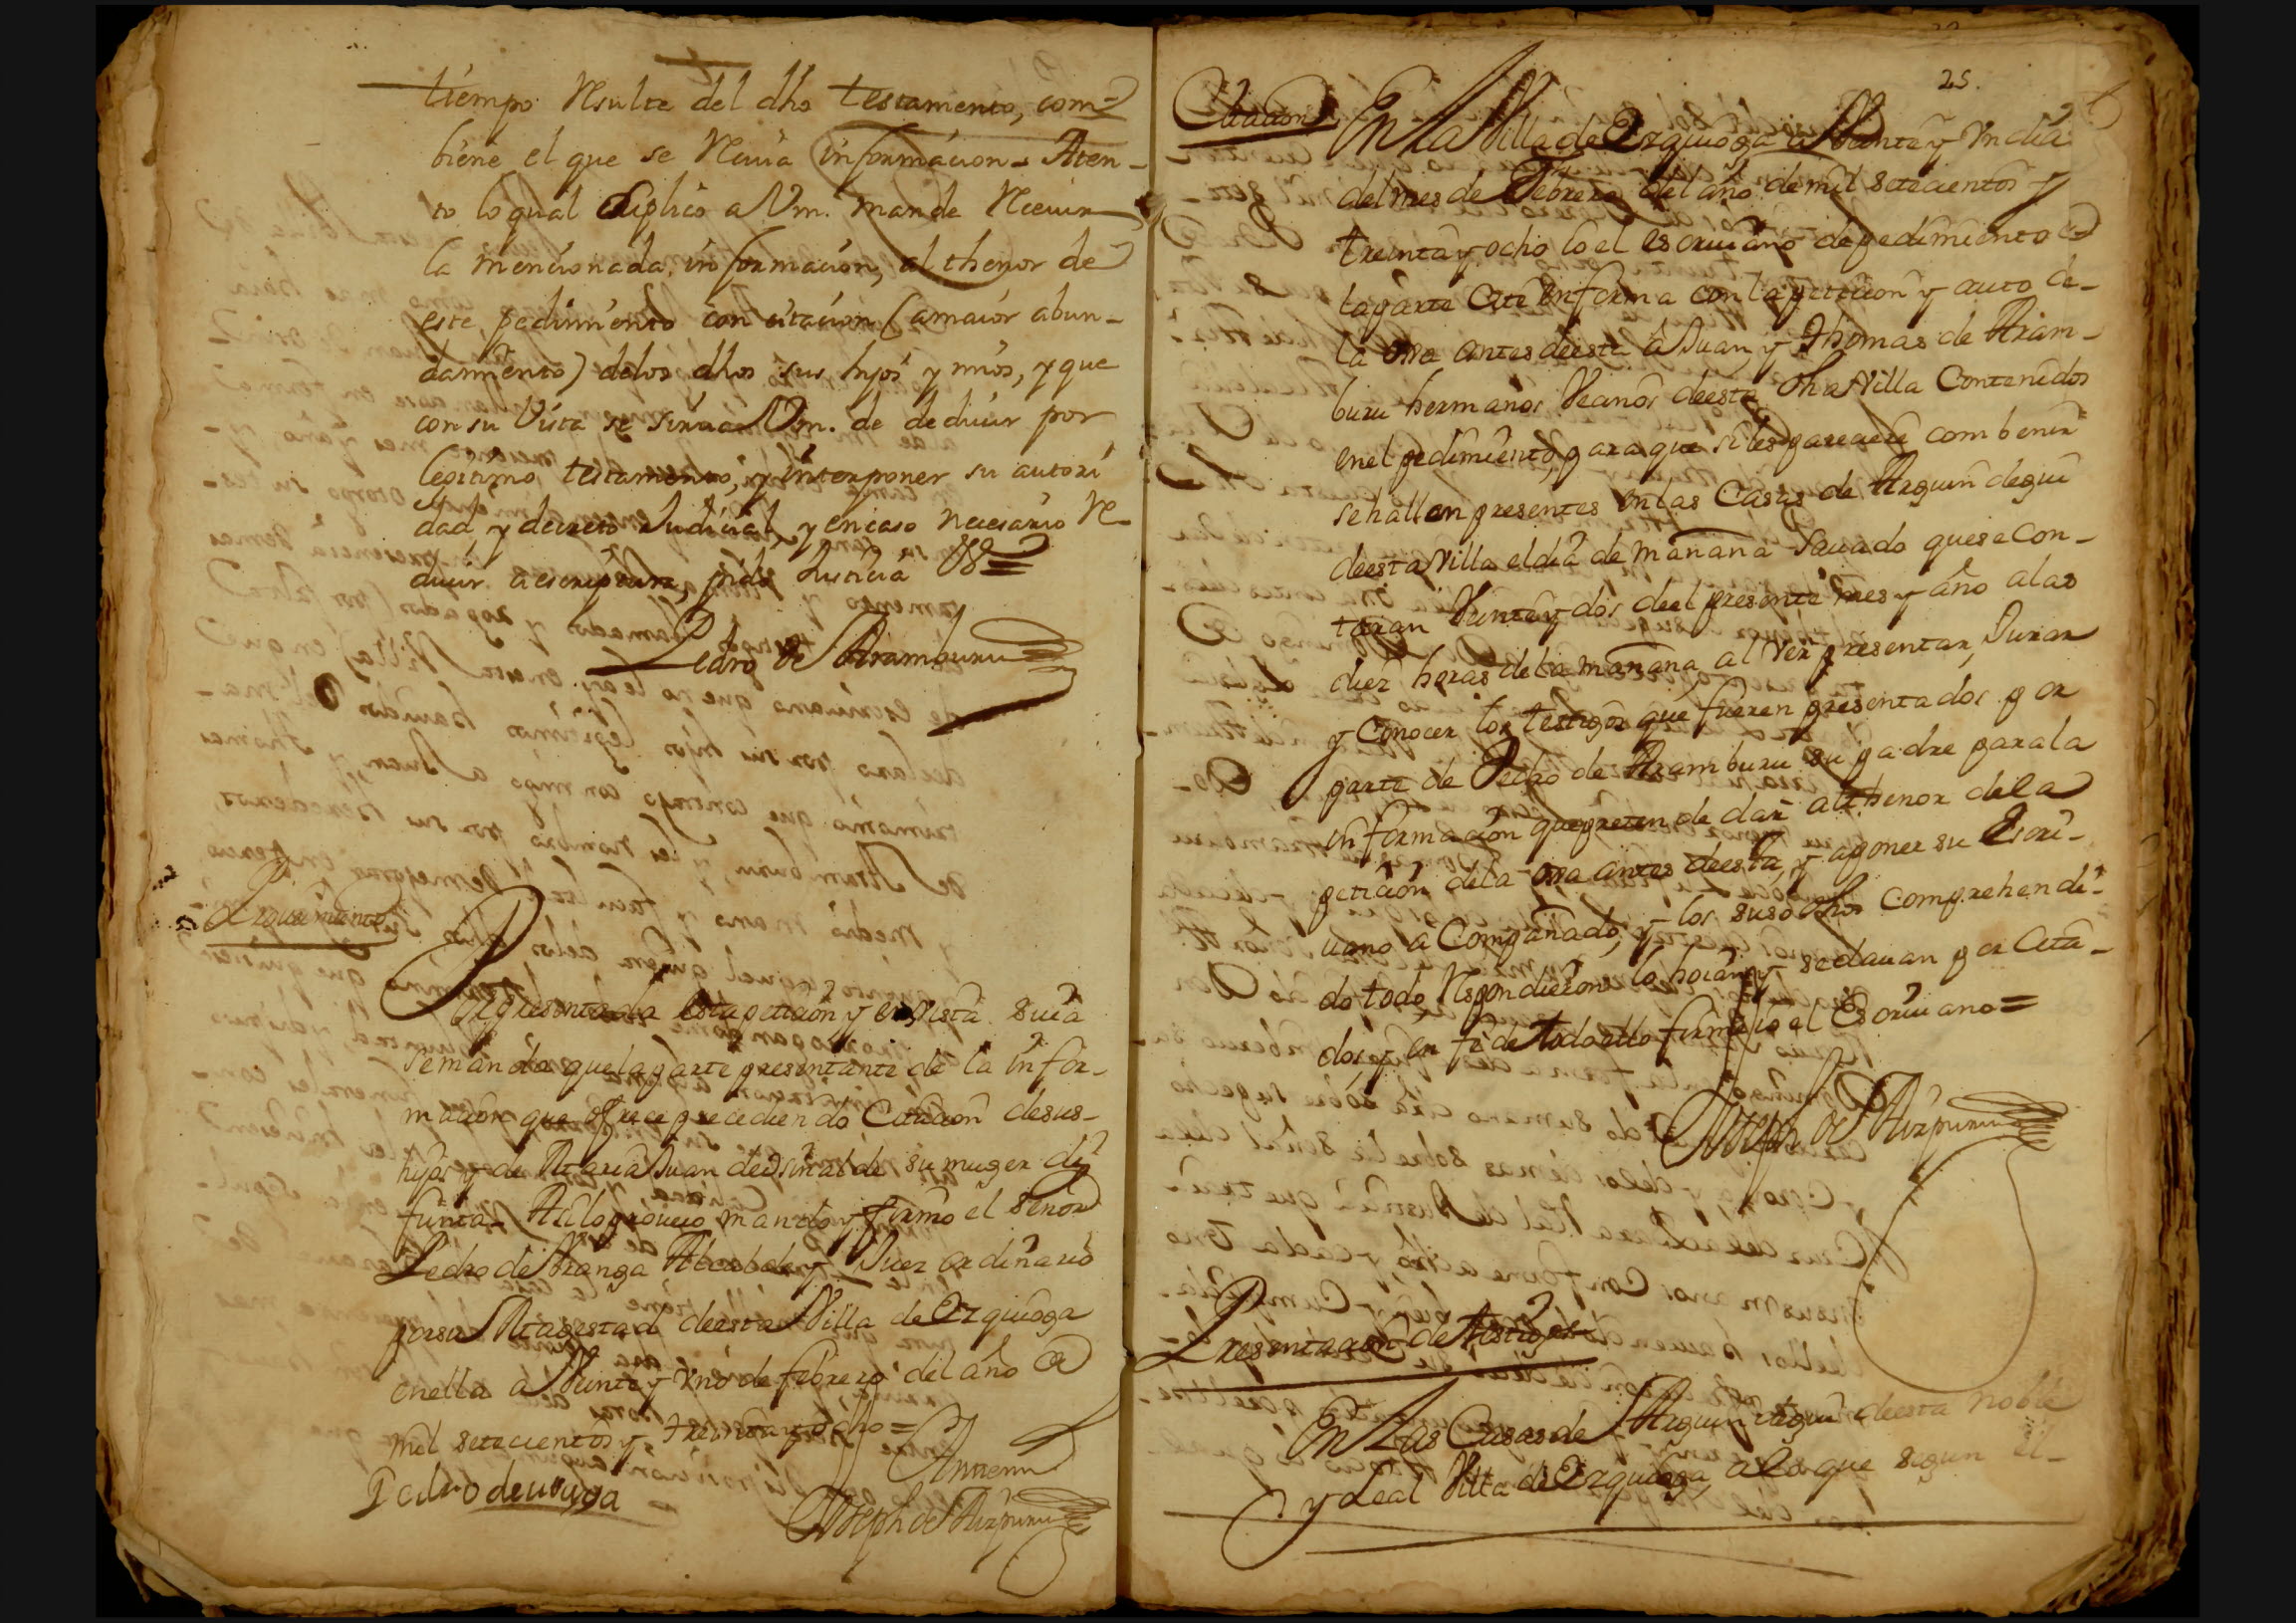 tiempo Resulte del dho testamento, com-
biene el que se Reciua información. Aten-
to lo qual Suplico a Vm. mande Receuir
la mencionada informacion, al thenor de
este pedimiento con citacion (amaior abun-
damiento) delos dhos sus hijos y mios, y que
con su Vista se sirua Vm. de deducir por
legitimo testamento, y interponer su autori
dad y decreto Judicial, y en caso necesario Re-
ducir a escriptura, pido Justicia
Pedro de Aramburu
Por presentada esta petición y en Vista suia
se manda que la parte presentante dé la infor-
macion que ofrece precediendo Citacion de sus
hijos y de Maria Juan de su muger di
funta. Asi lo proueio mando y firmo el señor
Pedro de Uranga Alcalde y Juez ordinario
por su Magestad deesta Villa de Ezquioga
en ella a Veinte y Vno de febrero del año de
mil setecientos y treinta y ocho =
Pedro de uranga
Antemi
Joseph de Aizpuru
25.
Citacion
En la Villa de Ezquioga a Veinte y Vn dia
del mes de Febrero del año de mil setecientos y
treinta y ocho Io el escriuano de pedimiento de
la parte Cite en forma con la peticion y auto de
la oja antes deesta â Juan y Thomas de Aram-
buru hermanos Vecinos deesta dha Villa Contenidos
en el pedimiento, para que si les pareciere combenir
se hallen presentes en las Casas de Arguin degui
deesta Villa el dia de mañana Sauado que se Con-
taran Veinte y dos deel presente mes y año a las
diez horas de la mañana al Ver presentar, Jurar
y Conocer los testigos que fueren presentados por
parte de Pedro de Aramburu su padre para la
informacion que pretende dar al thenor dela
petición dela oja antes deesta, y a poner su Escri-
uano a Compañado, y los suso dhos comprehendi-
do todo Respondieron lo hoian y se dauan por Cita-
dos, y en fe de todo ello firmé io el Escriuano =
Joseph de Aizpuru
Presentacion de testigos
En Las Casas de Arguin degui deesta noble
y Leal Villa de Ezquioga, a lo que segun el